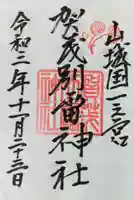 山城国一之宮
賀茂別雷神社
令和二年十一月二十三日